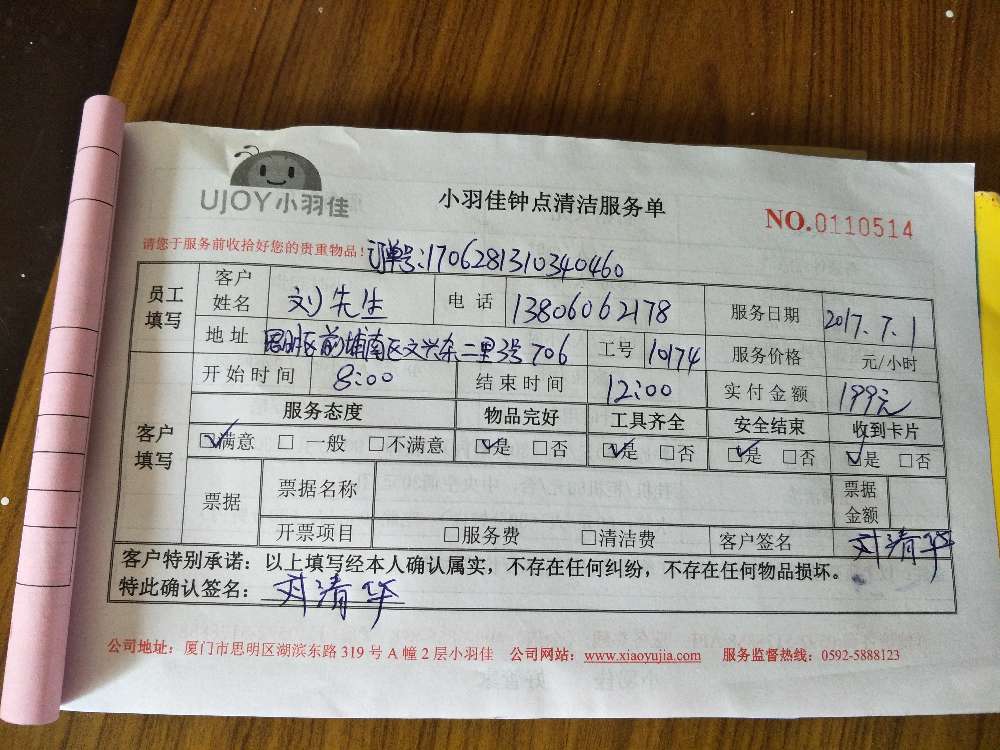 UJOY小羽佳
小羽佳钟点清洁服务单
NO.0110514
请您于服务前收拾好您的贵重物品!
订单号:1706281310340460
员工填写 客户姓名 刘先生 电话 13806062178 服务日期 2017.7.1
地址 思明区前埔南区文兴东二里3号706 工号 10174 服务价格 元/小时
开始时间 8:00 结束时间 12:00 实付金额 199元
客户填写 服务态度 物品完好 工具齐全 安全结束 收到卡片
☑满意 □一般 □不满意 ☑是 □否 ☑是 □否 ☑是 □否 ☑是 □否
票据 票据名称 票据金额
开票项目 □服务费 □清洁费 客户签名 刘清华
客户特别承诺:以上填写经本人确认属实,不存在任何纠纷,不存在任何物品损坏。
特此确认签名: 刘清华
公司地址:厦门市思明区湖滨东路 319 号 A 幢 2 层小羽佳 公司网站:www.xiaoyujia.com 服务监督热线:0592-5888123